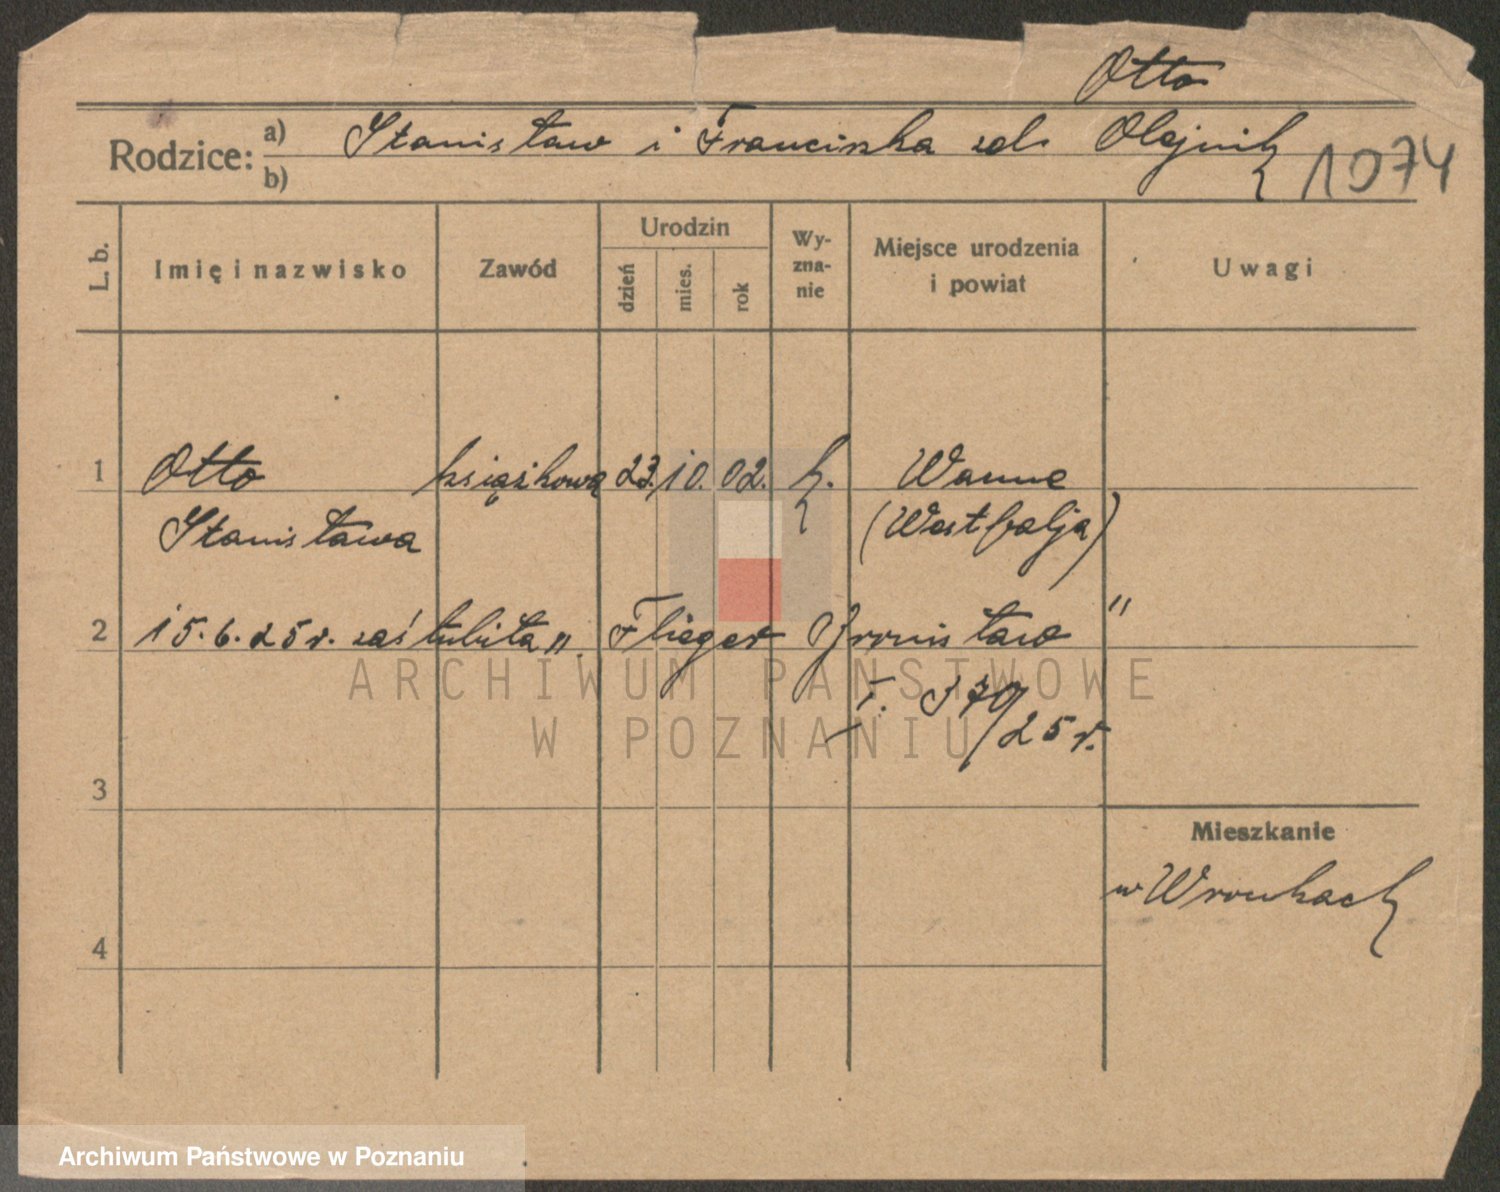 Otto
Rodzice: a) Stanisław i Franciszka zd. Olejnik 1074
b)
L. b. Imię i nazwisko Zawód Urodzin dzień mies. rok Wy-zna-nie Miejsce urodzenia i powiat Uwagi
1 Otto książkową 23. 10. 02. k. Wanne
Stanisława (Westfalja)
2 15.6.25 r. zaślubiła " Flieger Bronisław "
T. 370/25 r.
3
Mieszkanie
w Wronkach
4
ARCHIWUM PAŃSTWOWE
W POZNANIU
Archiwum Państwowe w Poznaniu